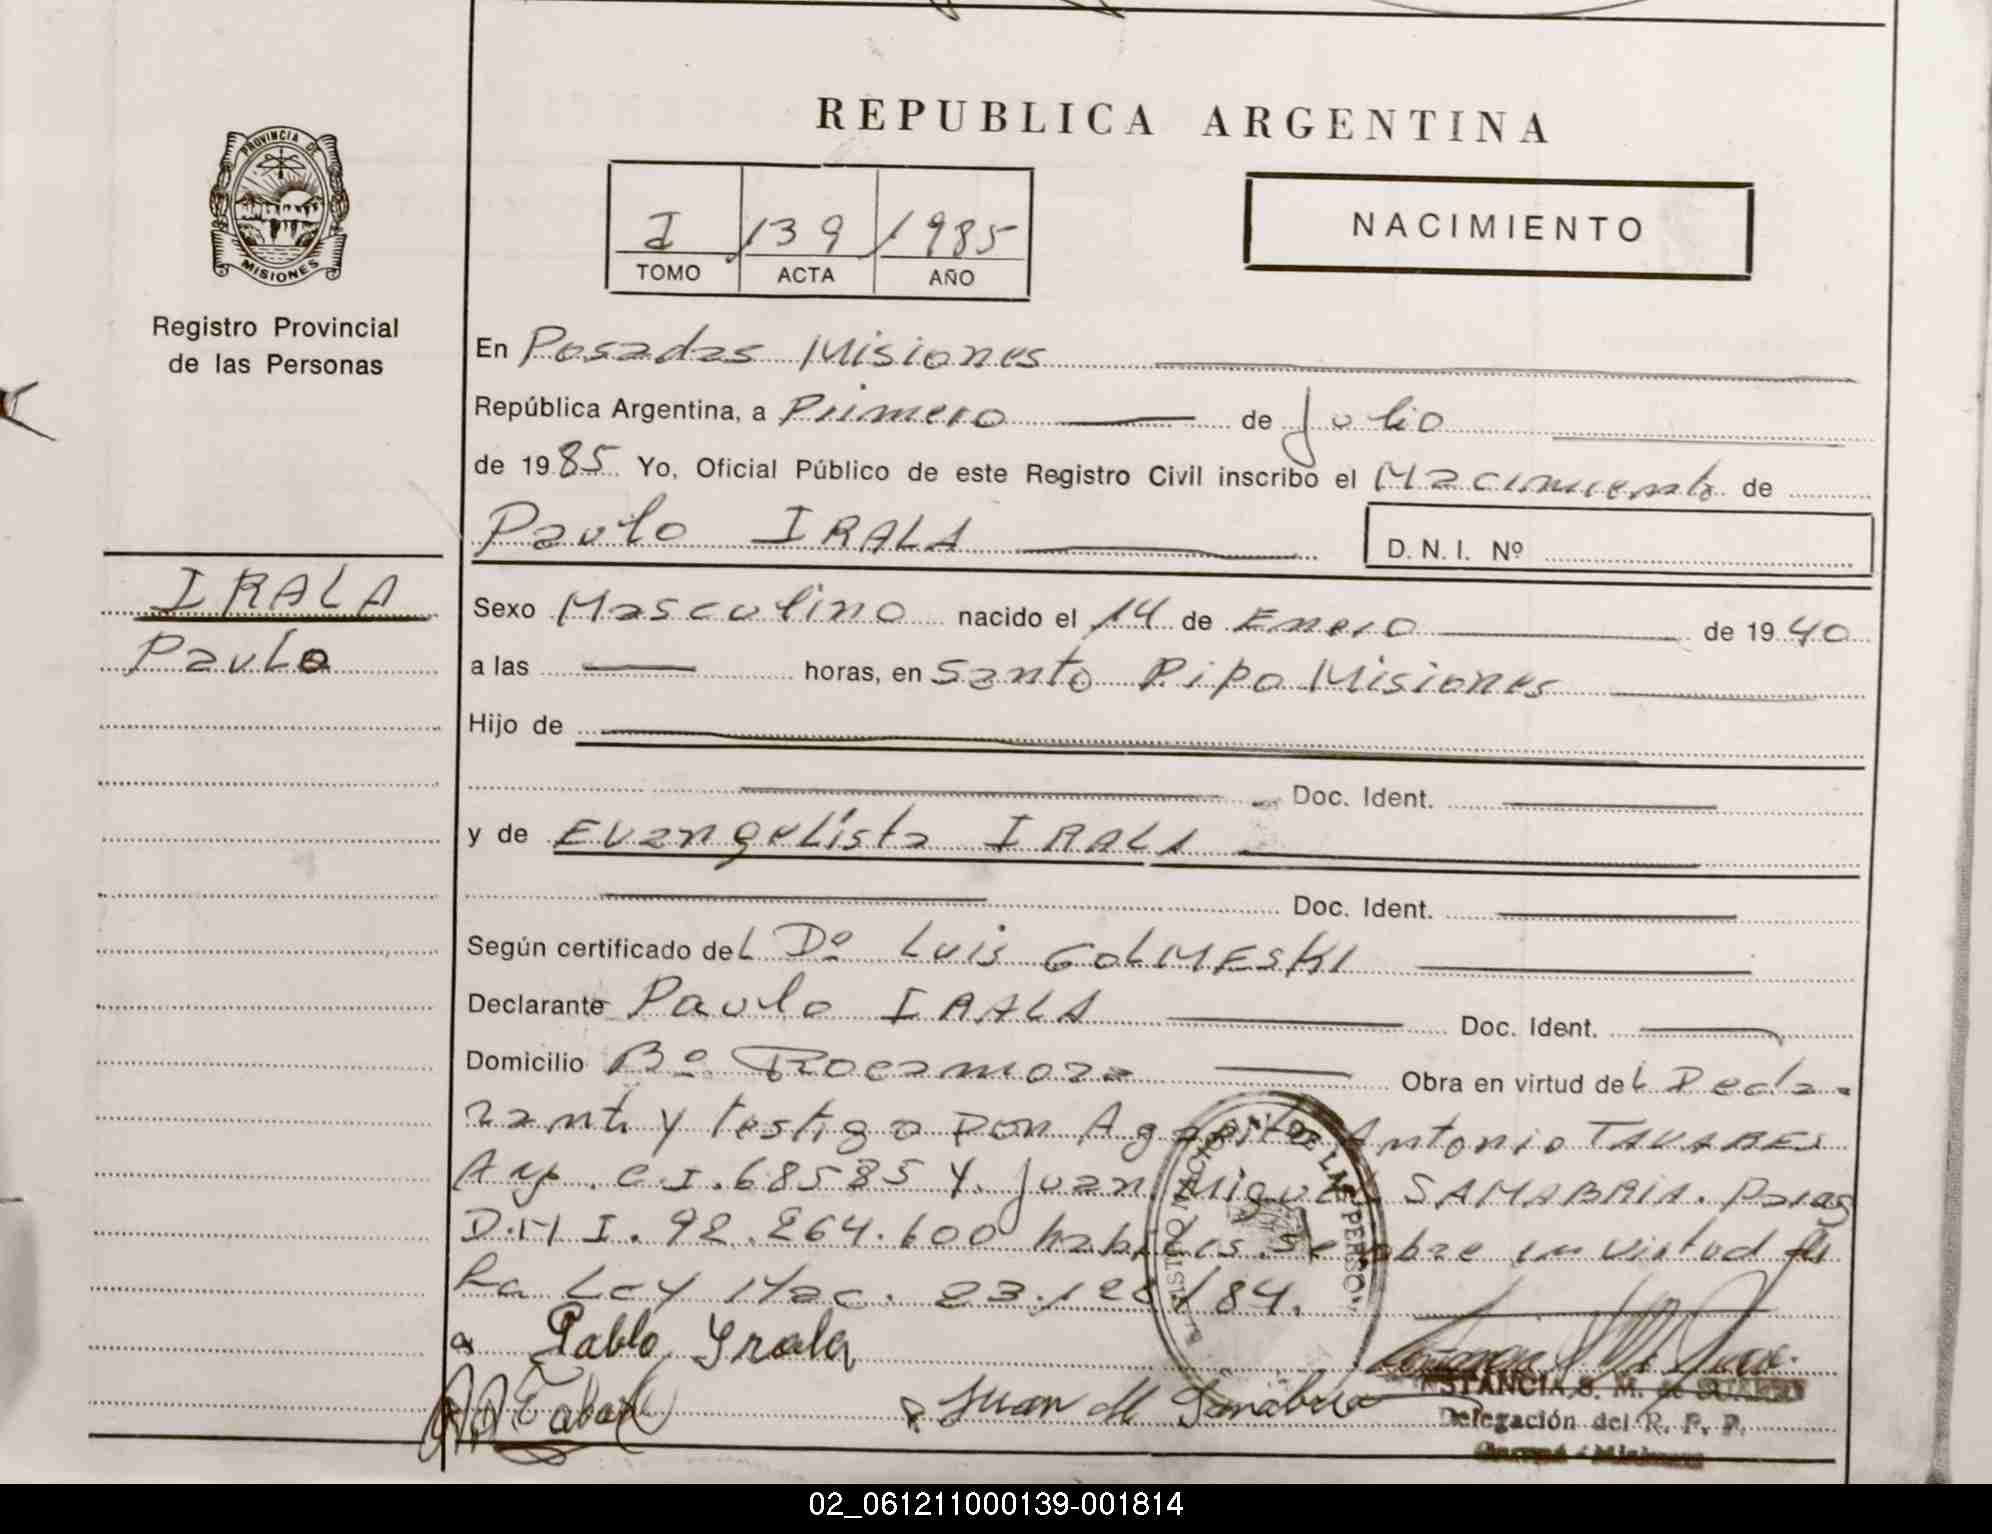 REPUBLICA ARGENTINA
PROVINCIA DE MISIONES
Registro Provincial
de las Personas
I 139 1985
TOMO ACTA AÑO
NACIMIENTO
En Posadas Misiones
República Argentina, a Primero de Julio
de 1985 Yo, Oficial Público de este Registro Civil inscribo el Nacimiento de
Paulo IRALA D. N. I. Nº
IRALA
Paulo
Sexo Masculino nacido el 14 de Enero de 1940
a las horas, en Santo Pipo Misiones
Hijo de
Doc. Ident.
y de Evangelista IRALA
Doc. Ident.
Según certificado del Dº Luis GOLMESKI
Declarante Paulo IRALA Doc. Ident.
Domicilio Bº Rocamora Obra en virtud del Decla-
rante y testigo Don Agapito Antonio TAVARES
Arg. C.I. 68585 Y Juan Miguel SANABRIA. Parag
D.N I. 92.264.600 habiles. Se abre en virtud de
La Ley Nac. 23.128/84.
Pablo Yrala
Juan M Sanabria
CONSTANCIA S. M. de SUAREZ
Delegación del R. P. P.
Misiones
02_061211000139-001814